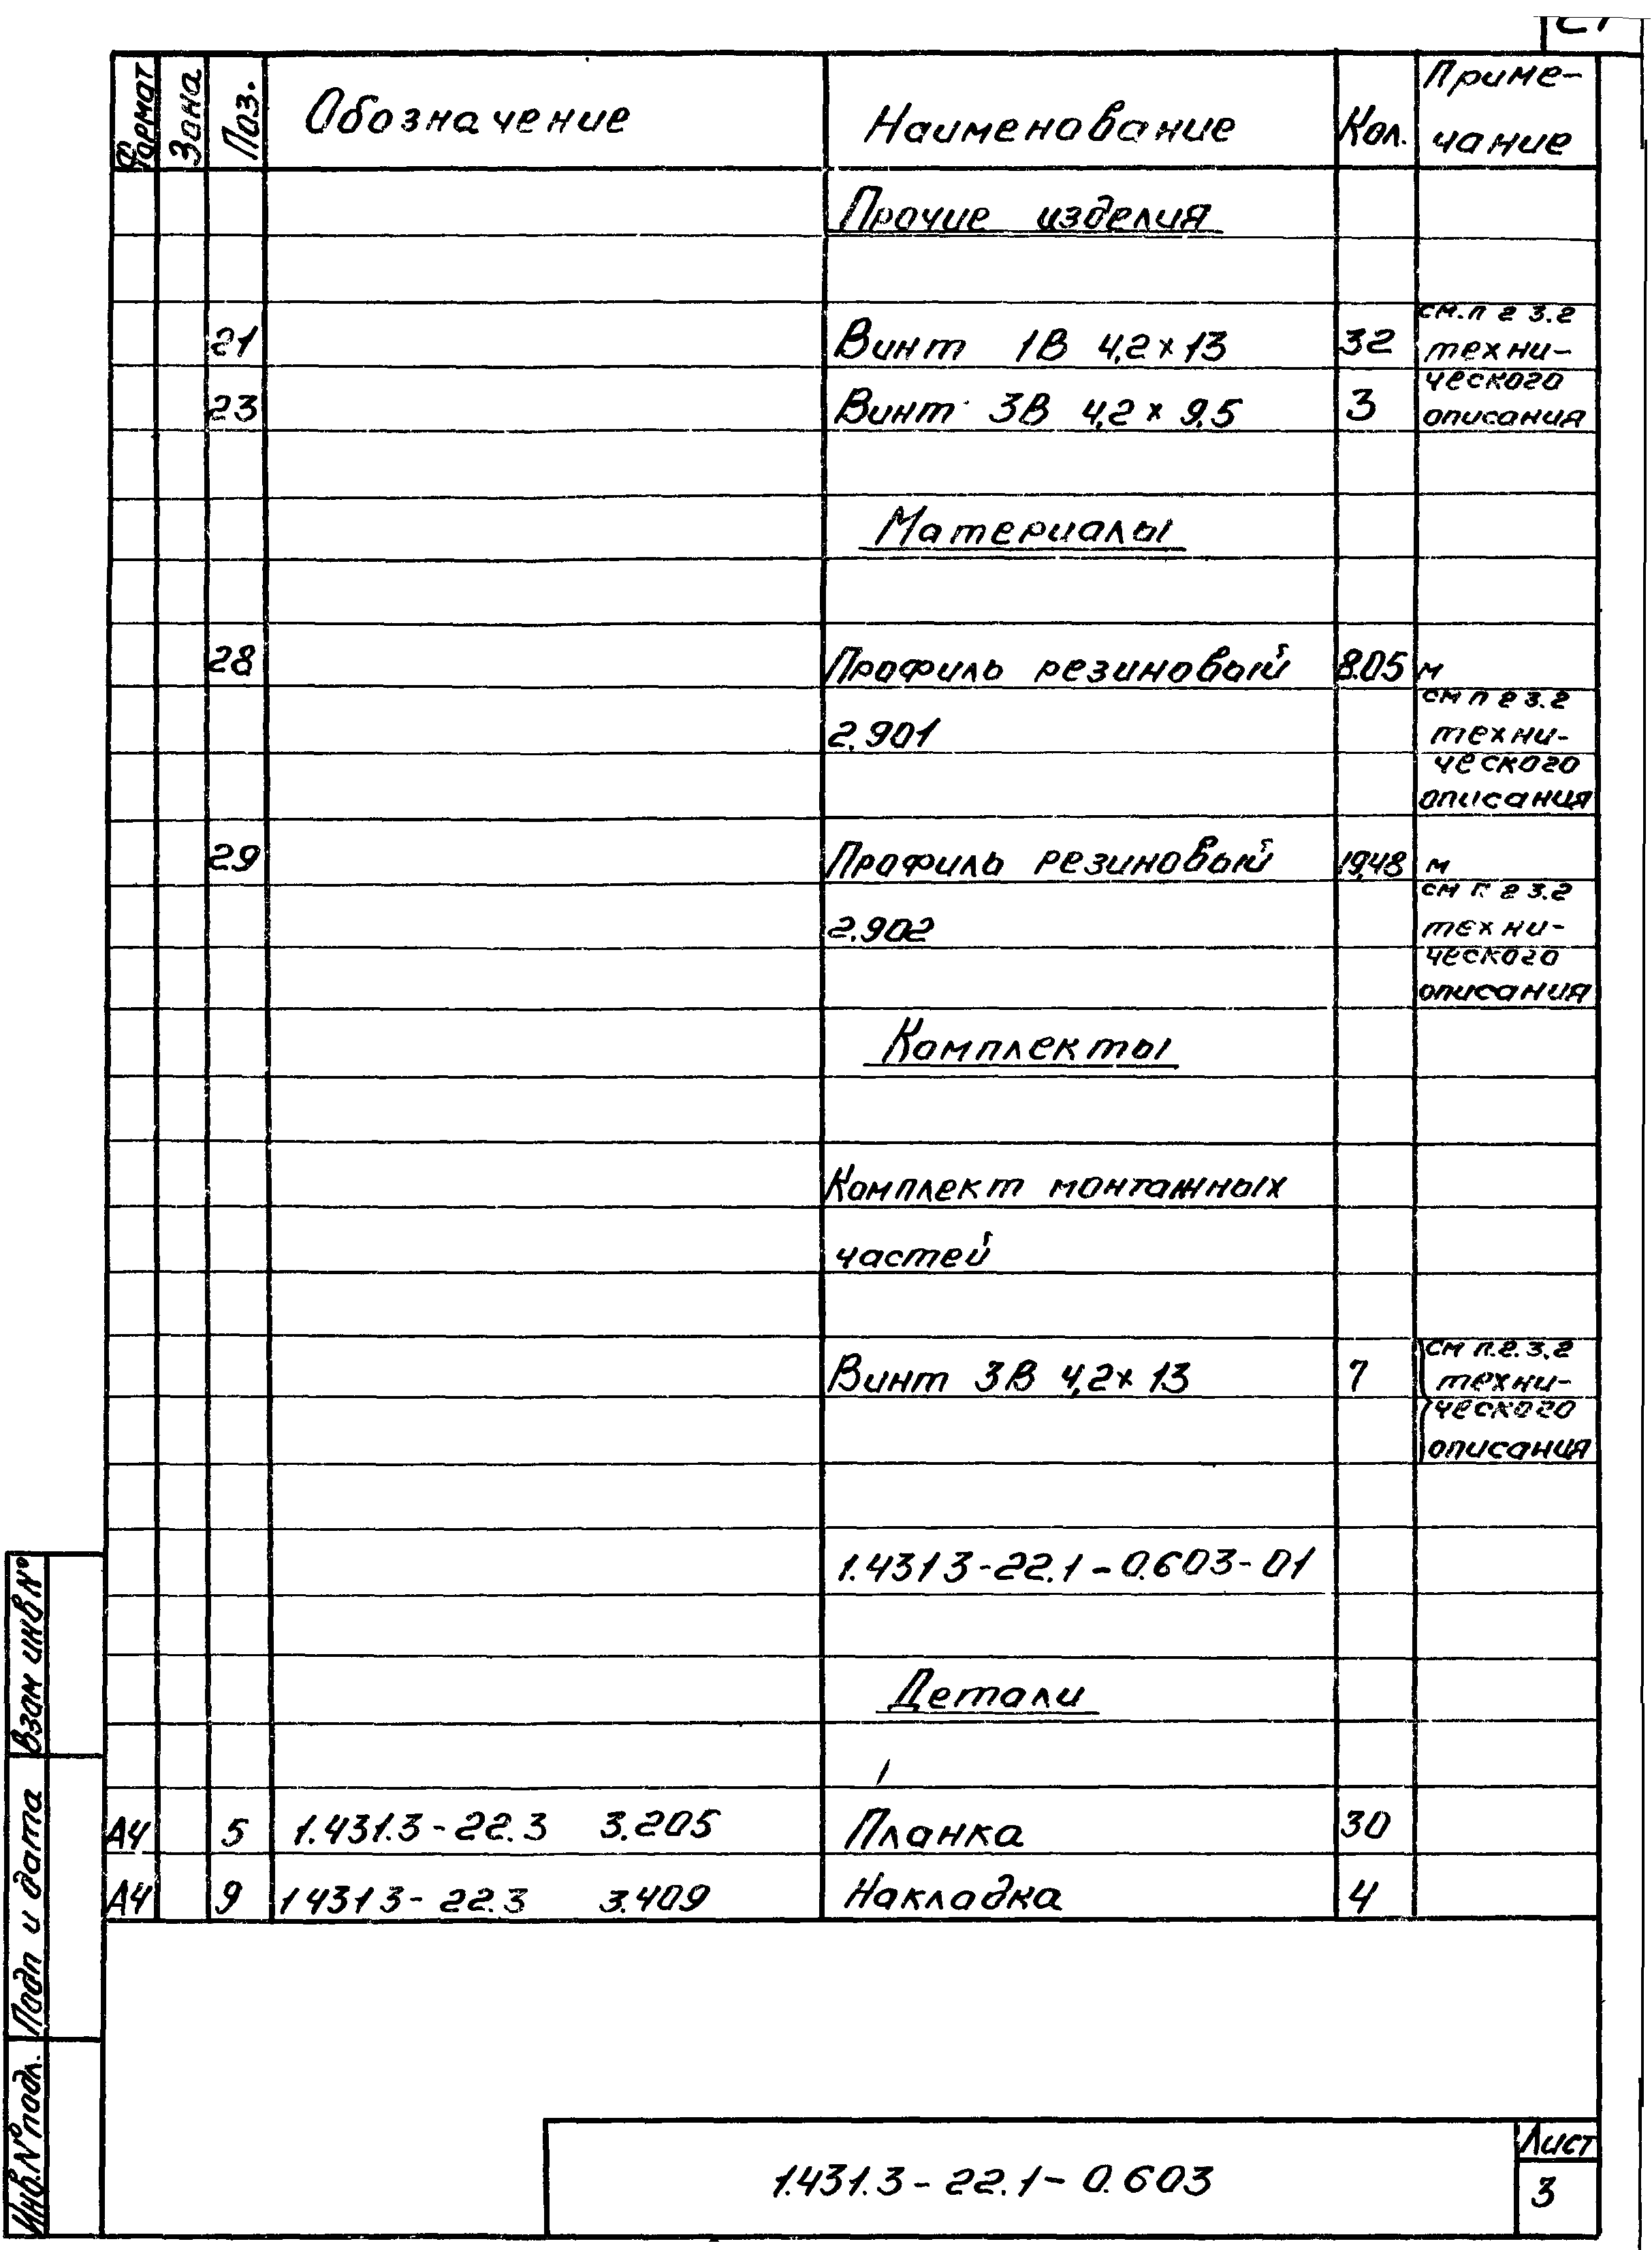 Формат Зона Поз. Обозначение Наименование Кол. Приме-
чание
Прочие изделия
21 Винт 1В 4,2×13 32 см. п 2 3.2
техни-
ческого
23 Винт 3В 4,2 × 9,5 3 описания
Материалы
28 Профиль резиновый 8.05 м
2.901 см п 2 3.2
техни-
ческого
описания
29 Профиль резиновый 19,48 м
2.902 см п 2 3.2
техни-
ческого
описания
Комплекты
Комплект монтажных
частей
Винт 3В 4,2× 13 7 см п.2.3.2
техни-
ческого
описания
1.4313-22.1-0.603-01
Детали
А4 5 1.431.3-22.3 3.205 Планка 30
А4 9 1 4313-22.3 3.409 Накладка 4
Взам инв №
Подп и дата
Инв.№ подл.
1.431.3-22.1-0.603
Лист
3